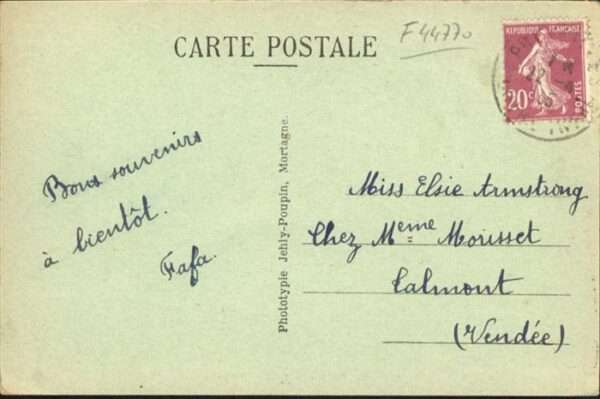 F 44770
CARTE POSTALE
REPUBLIQUE FRANÇAISE
20c
POSTES
Bons souvenirs
à bientôt.
Fafa.
Phototypie Jehly-Poupin, Mortagne.
Miss Elsie Armstrong
Chez Meme Mousset
Talmont
(Vendée)